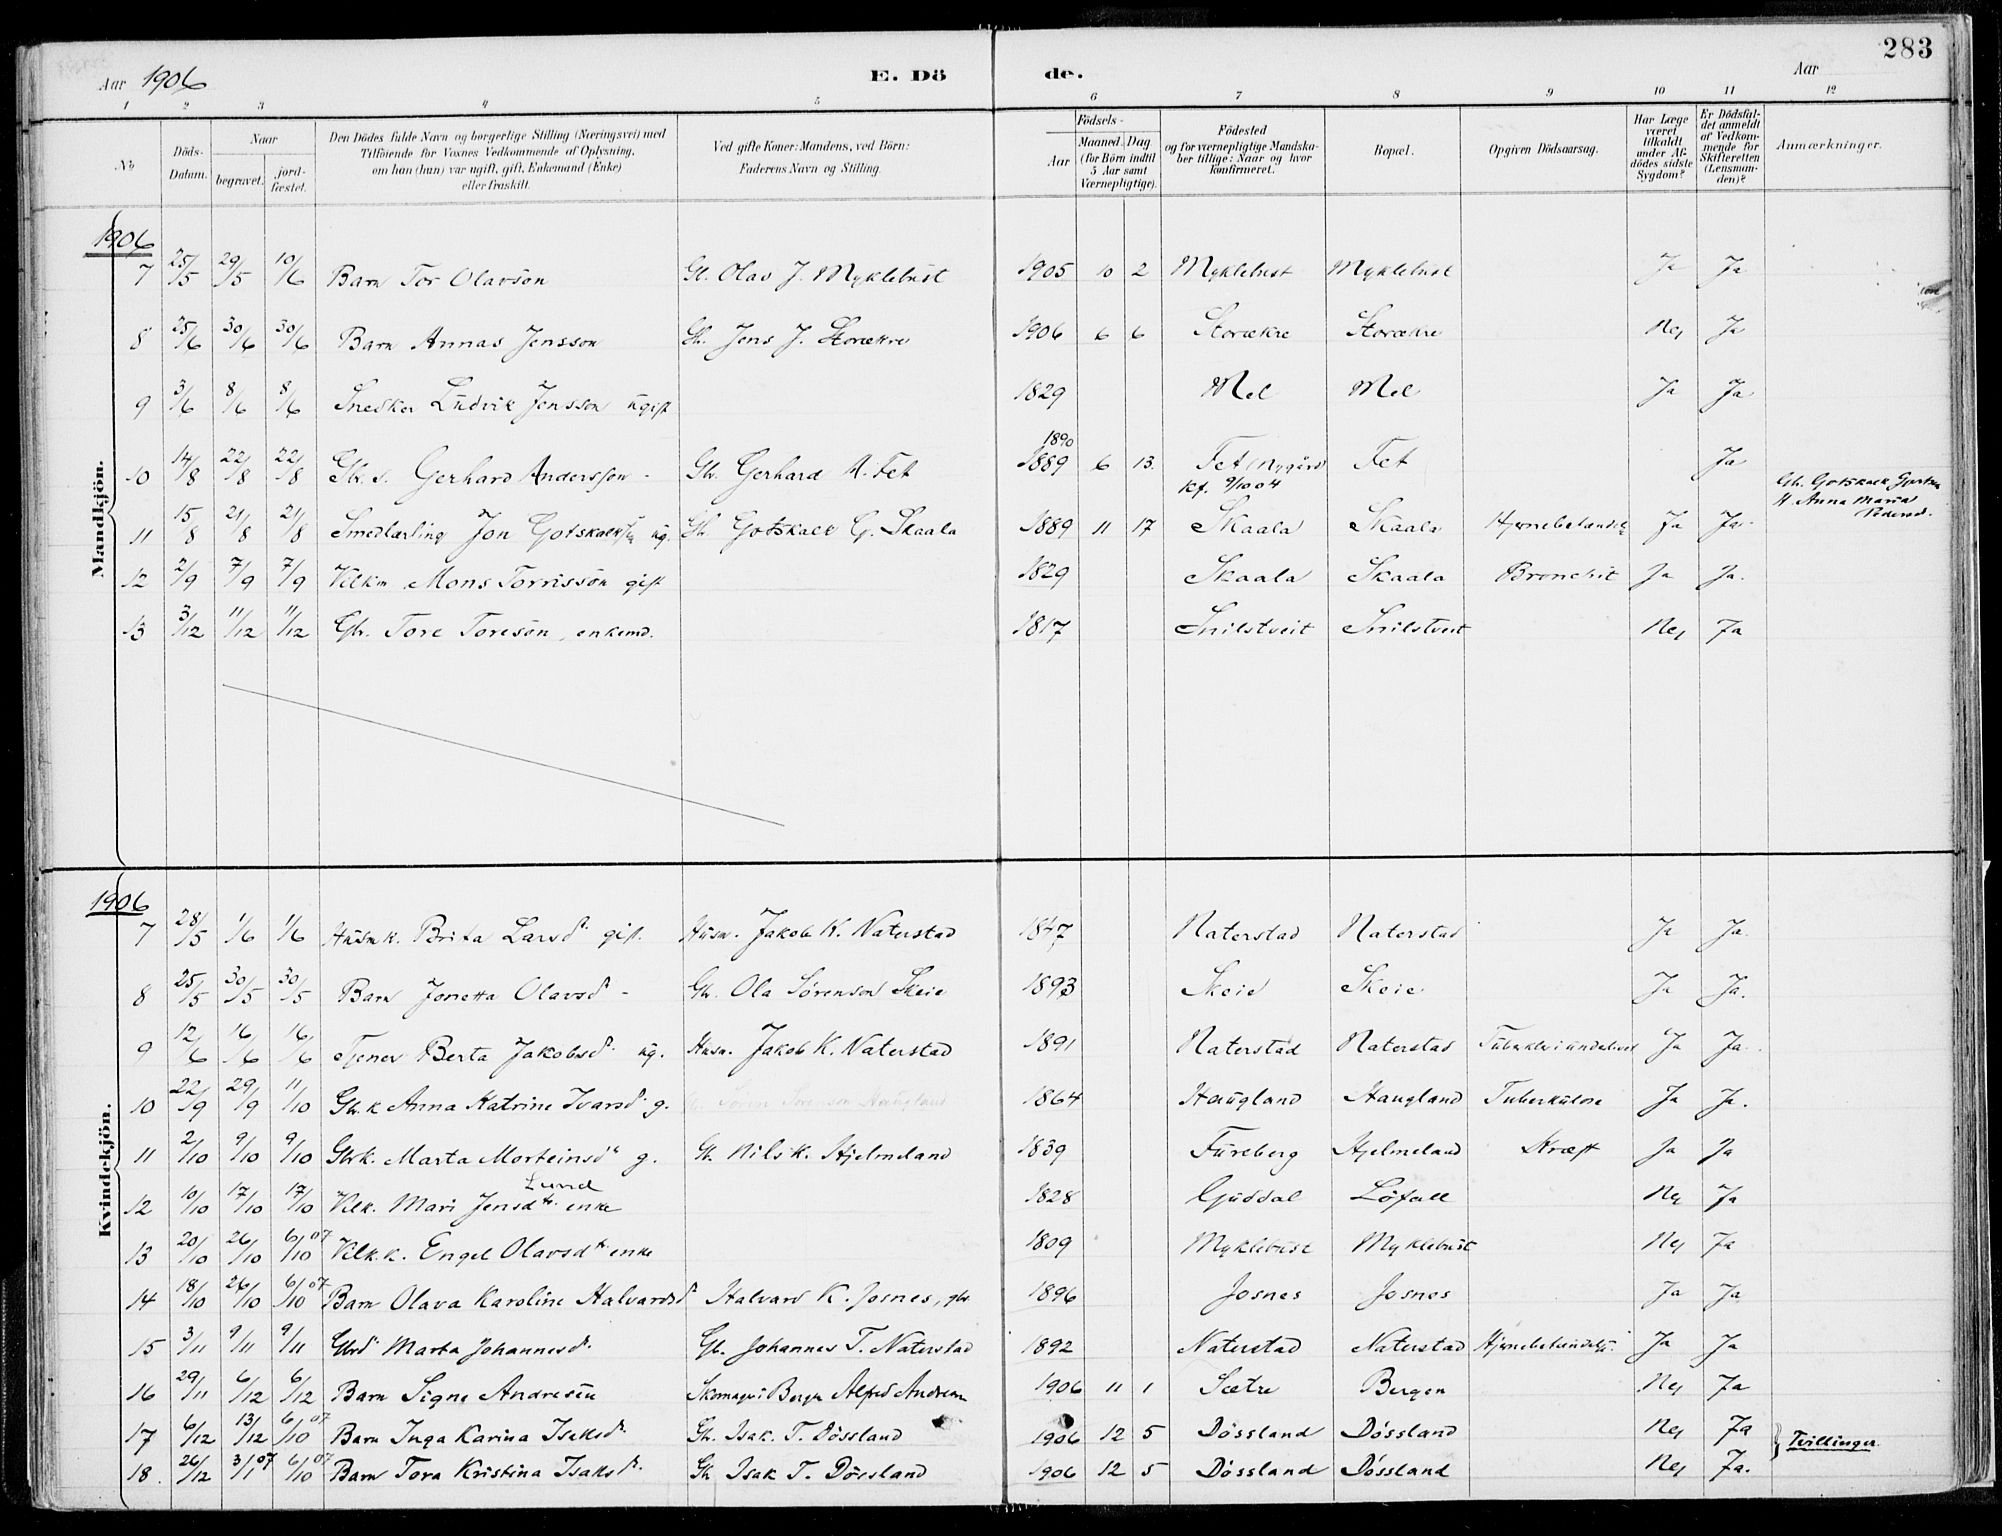 283
Aar 1906 E. Dö de. Aar
1 2 3 4 5 6 7 8 9 10 11 12
No
Döds-Datum.
Naar begravet. jordfæstet.
Den Dödes fulde Navn og borgerlige Stilling (Næringsvei) med Tilföiende for Voxnes Vedkommende af Oplysning, om han (hun) var ugift, gift, Enkemand (Enke) eller fraskilt.
Ved gifte Koner: Mandens, ved Börn: Faderens Navn og Stilling.
Födsels- Aar Maaned. Dag (for Börn indtil 5 Aar samt Værnepligtige).
Födested og for værnepligtige Mandskaber tillige: Naar og hvor konfirmeret.
Bopæl.
Opgiven Dödsaarsag.
Har Læge været tilkaldt under Afdödes sidste Sygdom?
Er Dödsfaldet anmeldt af Vedkommende for Skifteretten (Lensmanden)?
Anmærkninger.
Mandkjön.
1906
7 25/5 29/5 10/6 Barn Tor Olavson Gb. Olav J. Myklebust 1905 10 2 Myklebust Myklebust Ja Ja
8 25/6 30/6 30/6 Barn Annas Jensson Gb. Jens J. Storækre 1906 6 6 Storækre Storækre Nej Ja
9 3/6 8/6 8/6 Snedker Ludvik Jensson ugift 1829 Mel Mel Ja Ja
1890
10 14/8 22/8 22/8 Gbr. s. Gerhard Andersson - Gbr. Gerhard A. Fet 1889 6 13. Fet (Nygård) Fet Ja
kf. 9/10 04
Gb. Gotskalk
H. Anna Maria Pedersd.
11 15/8 21/8 21/8 Smedlærling Jon Gotskalks ug. Gb. Gotskalk G. Skaala 1889 11 17 Skaala Skaala Hjernebetændelse Ja Ja
12 2/9 7/9 7/9 Vilkm Mons Torrisson gift 1829 Skaala Skaala Bronchit Ja Ja.
13 3/12 11/12 11/12 Gbr. Tore Toreson, enkemd. 1817 Snilstveit Snilstveit Nej Ja
Kvindekjön.
1906
7 28/5 1/6 1/6 Husmk. Brita Larsd. gift. Husm. Jakob K. Naterstad 1847 Naterstad Naterstad Ja Ja.
8 25/5 30/5 30/5 Barn Jonetta Olavsd - Gb. Ola Sörenson Skeie 1893 Skeie Skeie Ja Ja.
9 12/6 16/6 16/6 Tjener Berta Jakobsd. ug. Husm. Jakob K. Naterstad 1891 Naterstad Naterstad Ja Ja
10 22/9 29/9 11/10 Gb. k Anna Katrine Ivarsd. g. Sören Sörenson Haugland 1864 Haugland Haugland Tuberkulose Ja Ja.
11 2/10 9/10 9/10 Gbrk. Marta Morteinsd g. Gb. Nils K. Hjelmeland 1839 Fureberg Hjelmeland Kræft Ja Ja
Lund
12 10/10 17/10 17/10 Vilk. Mari Jensdtr. enke 1828 Guddal Löfall Nej Ja
13 20/10 26/10 6/10 07 Vilk.k. Engel Olavsdtr enke 1809 Myklebust Myklebust Nej Ja
14 18/10 26/10 6/10 07 Barn Olava Karoline Halvardsd Halvard K. Josnes, gbr 1896 Josnes Josnes Ja Ja
15 3/11 9/11 9/11 Gbrd Marta Johannesd. Gb. Johannes T. Naterstad 1892 Naterstad Naterstad Hjernebetændelse Ja Ja
16 29/11 6/12 6/12 Barn Signe Andresen Skomager i Bergen Alfred Andresen 1906 11 1 Sætre Bergen Nej Ja
17 6/12 13/12 6/10 07 Barn Inga Karina Isaksd. Gb. Isak. T. Dössland 1906 12 5 Dössland Dössland Nej Ja
} Tvillinger
18. 26/12 3/1 07 6/10 07 Barn Tora Kristina Isaksd. Gb. Isak T. Dössland 1906 12 5 Dössland Dössland Nej Ja.